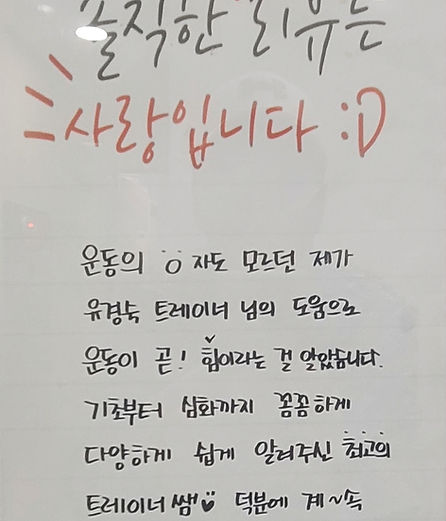 솔직한 리뷰는
사랑입니다 :D
운동의 ㅇ자도 모르던 제가
유경숙 트레이너 님의 도움으로
운동이 곧! 힘이라는 걸 알았습니다.
기초부터 심화까지 꼼꼼하게
다양하게 쉽게 알려주신 최고의
트레이너쌤 덕분에 계~속